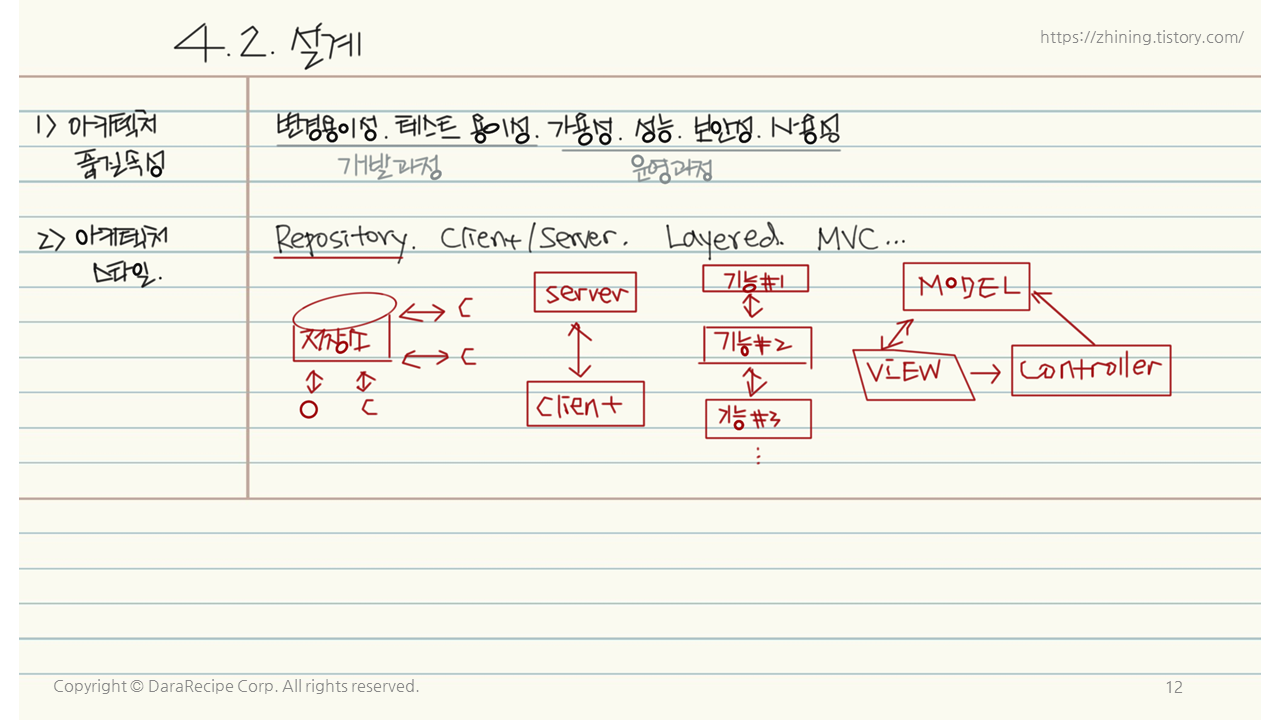 4.2. 설계
https://zhining.tistory.com/
1> 아키텍처
품질속성
변경용이성. 테스트 용이성. 가용성. 성능. 보안성. 사용성
개발과정 운영과정
2> 아키텍처
스타일.
Repository. Client/Server. Layered. MVC...
저장소
C
C
O C
server
client
기능#1
기능#2
기능#3
⋮
MODEL
VIEW
controller
Copyright © DaraRecipe Corp. All rights reserved.
12